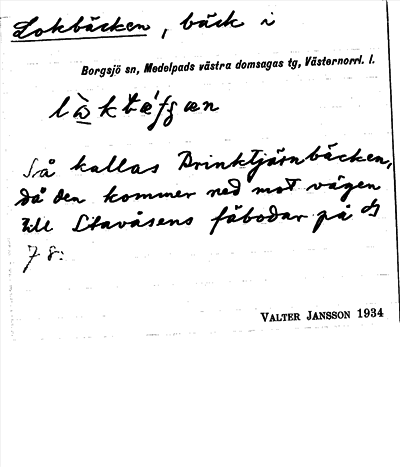 Lokbäcken, bäck i
Borgsjö sn, Medelpads västra domsagas tg, Västernorrl. l.
Så kallas Brinktjärnbäcken,
då den kommer ned mot vägen
till Stavåsens fäbodar på
78:
VALTER JANSSON 1934